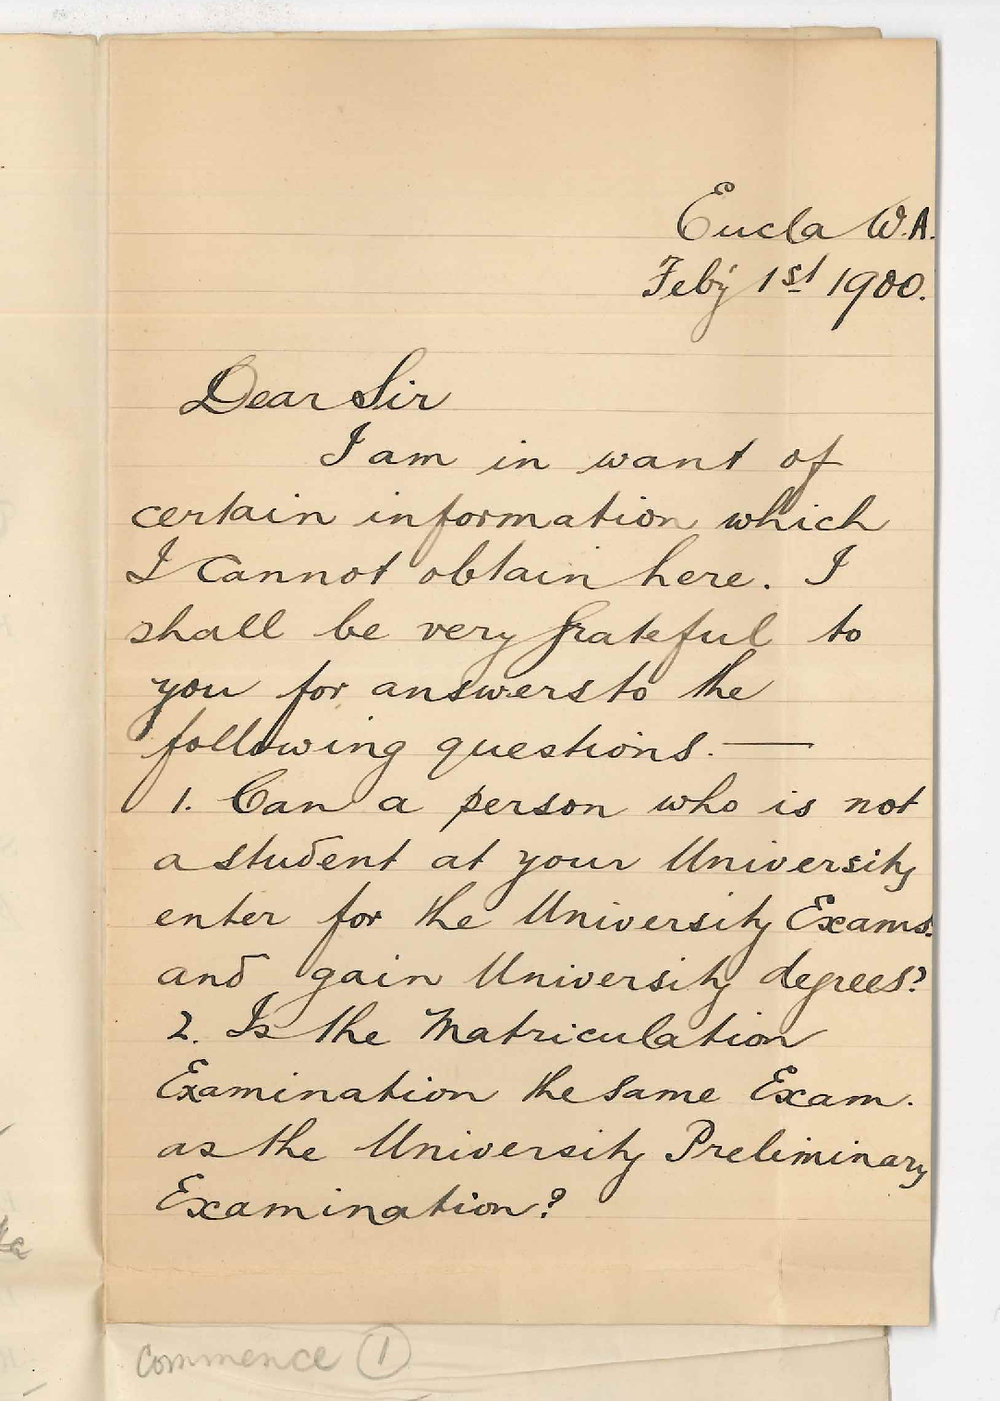 Eucla W.A.
Feby 1st 1900.
Dear Sir
I am in want of
certain information which
I cannot obtain here. I
shall be very grateful to
you for answers to the
following questions. —
1. Can a person who is not
a student at your University
enter for the University Exams.
and gain University degrees?
2. Is the Matriculation
Examination the same Exam.
as the University Preliminary
Examination?
commence 1